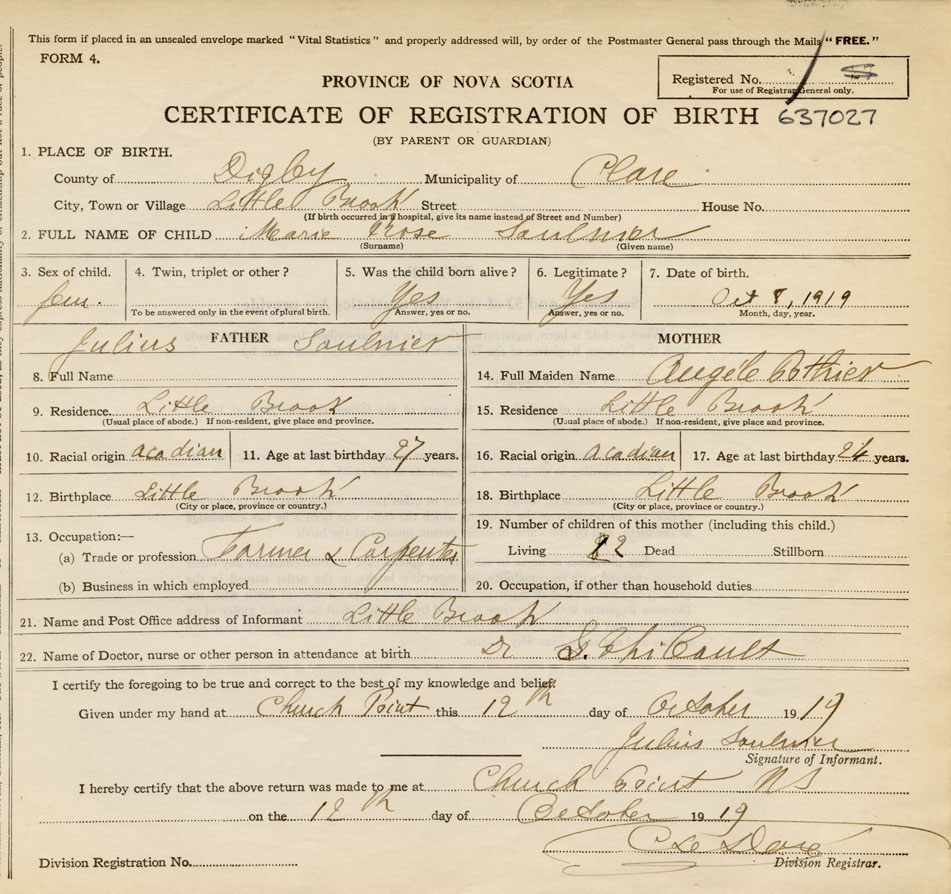 This form if placed in an unsealed envelope marked "Vital Statistics" and properly addressed will, by order of the Postmaster General pass through the Mails "FREE."
FORM 4.
PROVINCE OF NOVA SCOTIA
Registered No.
For use of Registrar General only.
CERTIFICATE OF REGISTRATION OF BIRTH 637027
(BY PARENT OR GUARDIAN)
1. PLACE OF BIRTH.
County of Digby Municipality of Clare
City, Town or Village Little Brook Street House No.
(If birth occurred in a hospital, give its name instead of Street and Number)
2. FULL NAME OF CHILD Marie Rose Saulnier
(Surname) (Given name)
3. Sex of child. 4. Twin, triplet or other? 5. Was the child born alive? 6. Legitimate? 7. Date of birth.
fem. Yes Yes Oct 8, 1919
To be answered only in the event of plural birth. Answer, yes or no. Answer, yes or no. Month, day, year.
FATHER MOTHER
8. Full Name Julius Saulnier 14. Full Maiden Name Angele Pothier
9. Residence. Little Brook 15. Residence Little Brook
(Usual place of abode.) If non-resident, give place and province. (Usual place of abode.) If non-resident, give place and province.
10. Racial origin acadian 11. Age at last birthday 27 years. 16. Racial origin acadian 17. Age at last birthday years.
12. Birthplace Little Brook 18. Birthplace Little Brook
(City or place, province or country.) (City or place, province or country.)
13. Occupation:— 19. Number of children of this mother (including this child.)
(a) Trade or profession Farmer & Carpenter Living 2 Dead Stillborn
(b) Business in which employed 20. Occupation, if other than household duties
21. Name and Post Office address of Informant Little Brook
22. Name of Doctor, nurse or other person in attendance at birth Dr
I certify the foregoing to be true and correct to the best of my knowledge and belief.
Given under my hand at Church Point this 12th day of October 1919
Julius Saulnier
Signature of Informant.
I hereby certify that the above return was made to me at Church Point NS
on the 12th day of October 1919
Division Registration No. Division Registrar.